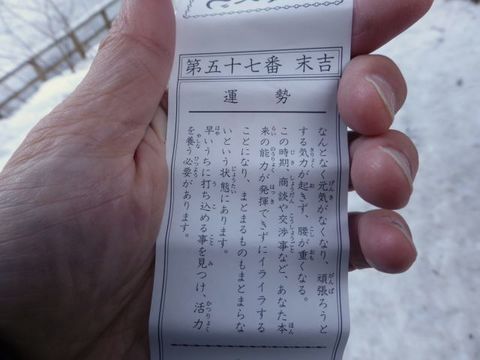 第五十七番 末吉
運勢
なんとなく元気がなくなり、頑張ろうと
する気力が起きず、腰が重くなる。
この時期、商談や交渉事など、あなた本
来の能力が発揮できずにイライラする
ことになり、まとまるものもまとまらな
いという状態にあります。
早いうちに打ち込める事を見つけ、活力
を養う必要があります。